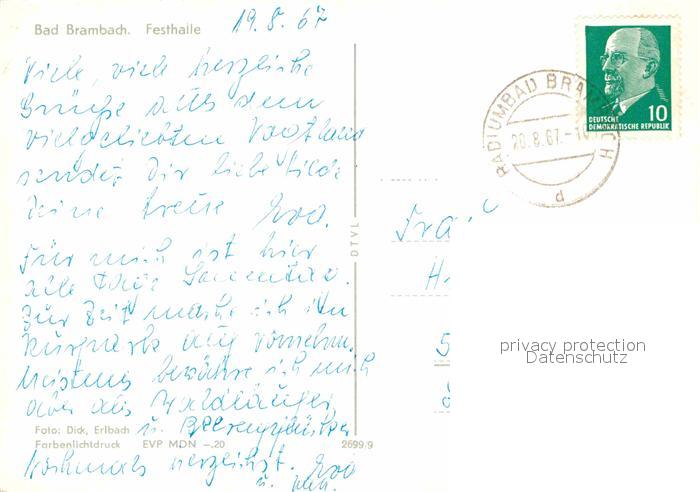 Bad Brambach. Festhalle
19.8.67
Viele, viele herzliche
Grüße aus dem
vielgeliebten Vogtland
sendet Dir liebe Hilde
Deine treue Eva.
Für mich ist hier
alle Tage Sonnentag.
Zur Zeit mache ich den
Kurpark auf vornehm.
Meistens bewähre ich mich
aber als Waldläufer
u. Beerenpflücker
Nochmals herzlichst. Eva
u.
Foto: Dick, Erlbach
Farbenlichtdruck EVP MDN –.20
2699/9
DTVL
RADIUMBAD BRAMBACH
20.8.67.-10
d
DEUTSCHE
DEMOKRATISCHE REPUBLIK
10
Fra
H
5
privacy protection
Datenschutz